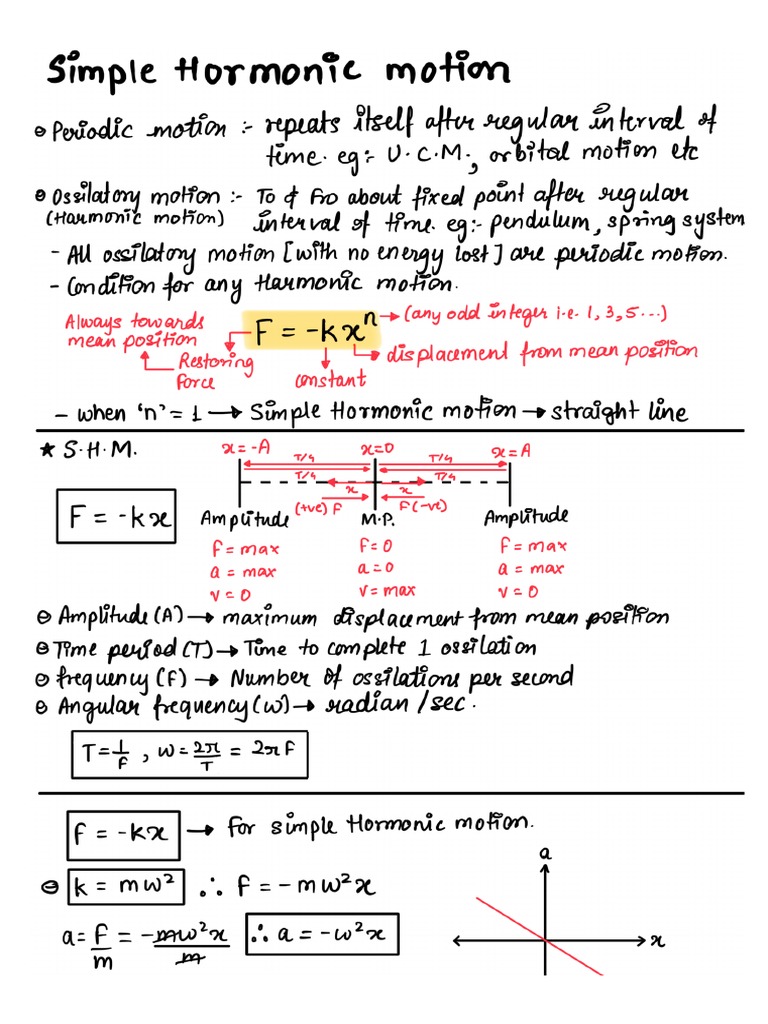 Simple Hormonic motion
Periodic motion :- repeats itself after regular interval of
time. eg:- U.C.M., orbital motion etc
Ossilatory motion :- To & fro about fixed point after regular
(Harmonic motion) interval of time. eg:- pendulum, spring system
- All ossilatory motion [with no energy lost] are periodic motion.
- Condition for any Harmonic motion.
Always towards mean position
Restoring force
F = -kxⁿ
→ (any odd integer i.e. 1, 3, 5...)
displacement from mean position
constant
- when 'n' = 1 → Simple Hormonic motion → straight line
★ S.H.M.
x=-A x=0 x=A
T/4 T/4
T/4 T/4
x x
(+ve) F F(-ve)
F = -kx
Amplitude M.P. Amplitude
F = max F=0 F = max
a = max a=0 a = max
v=0 v=max v=0
Amplitude (A) → maximum displacement from mean position
Time period (T) → Time to complete 1 ossilation
frequency (F) → Number of ossilations per second
Angular frequency (w) → radian /sec.
T = 1/F , w = 2π/T = 2πF
F = -kx → for simple Hormonic motion.
k = mw² ∴ F = -mw²x
a = F/m = -mw²x/m ∴ a = -w²x
a
x